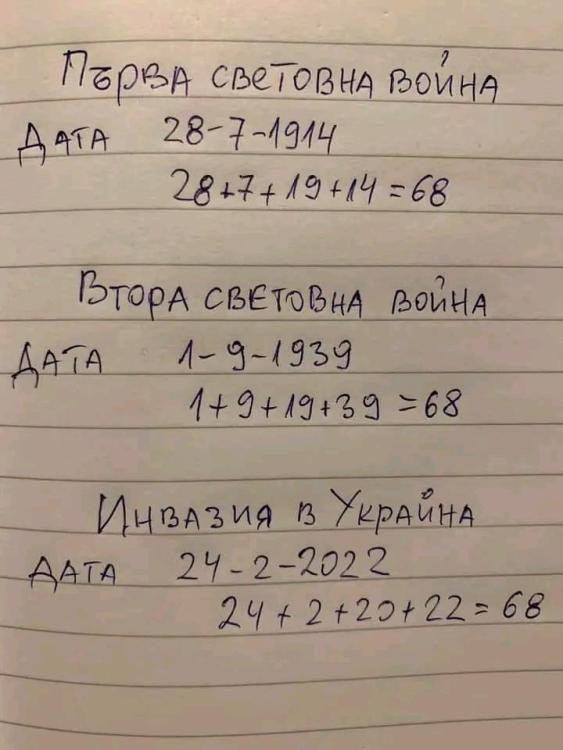 Първа световна война
Дата 28-7-1914
28+7+19+14=68
Втора световна война
Дата 1-9-1939
1+9+19+39=68
Инвазия в Украйна
Дата 24-2-2022
24+2+20+22=68